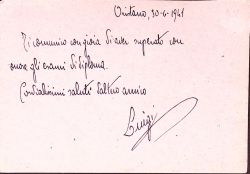 Oristano, 30-6-1941
Ti comunico con gioia di aver superato con
onore gli esami di diploma.
Cordialissimi saluti tuo amico
Luigi